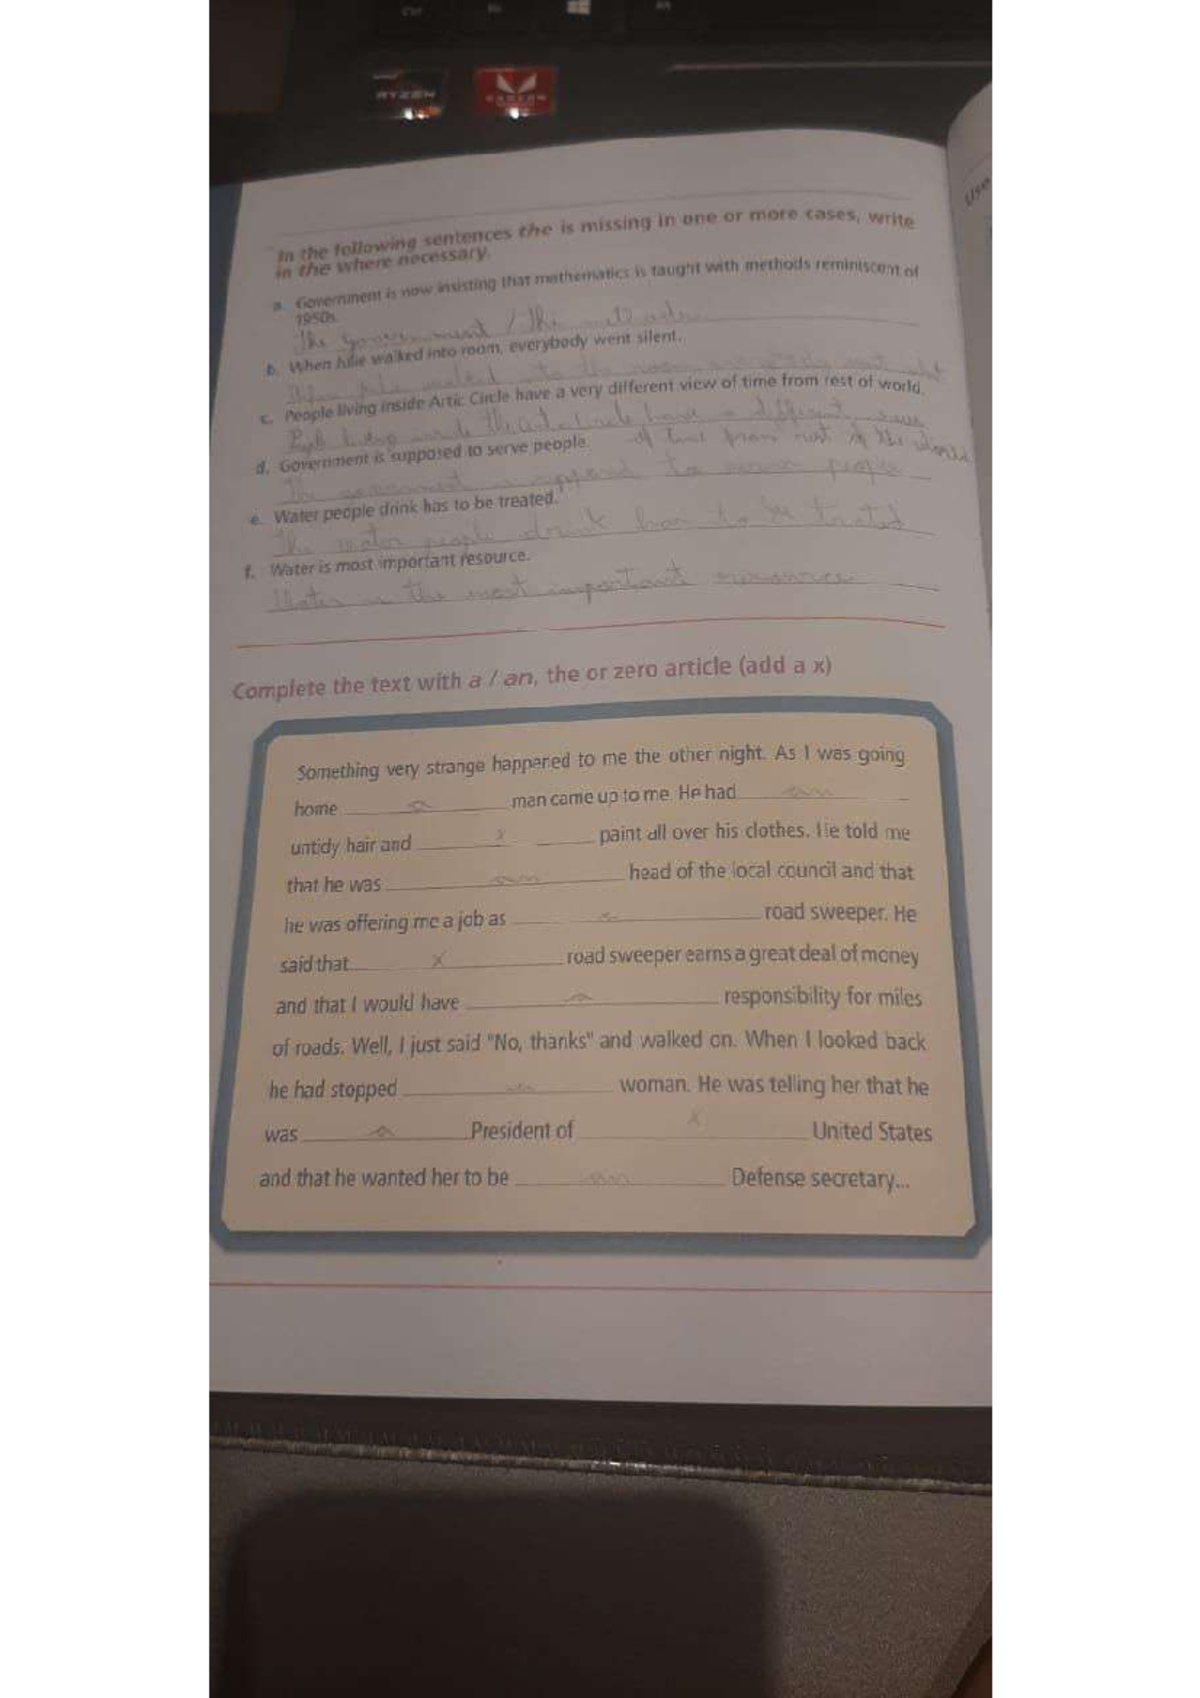 Ctrl
Alt
RYZEN
RADEON
Use
In the following sentences the is missing in one or more cases, write
in the where necessary.
a. Government is now insisting that mathematics is taught with methods reminiscent of
1950s.
The government / the
b. When Julie walked into room, everybody went silent.
to the room everybody went
c. People living inside Artic Circle have a very different view of time from rest of world.
living inside the Circle have a different
of time from rest of the world
d. Government is supposed to serve people.
The government is supposed to people
e. Water people drink has to be treated.
The water people drink has to be treated
f. Water is most important resource.
Water is the most important resource
Complete the text with a / an, the or zero article (add a x)
Something very strange happened to me the other night. As I was going
home a man came up to me. He had an
untidy hair and x paint all over his clothes. He told me
that he was an head of the local council and that
he was offering me a job as a road sweeper. He
said that x road sweeper earns a great deal of money
and that I would have a responsibility for miles
of roads. Well, I just said "No, thanks" and walked on. When I looked back
he had stopped woman. He was telling her that he
was a President of x United States
and that he wanted her to be an Defense secretary...